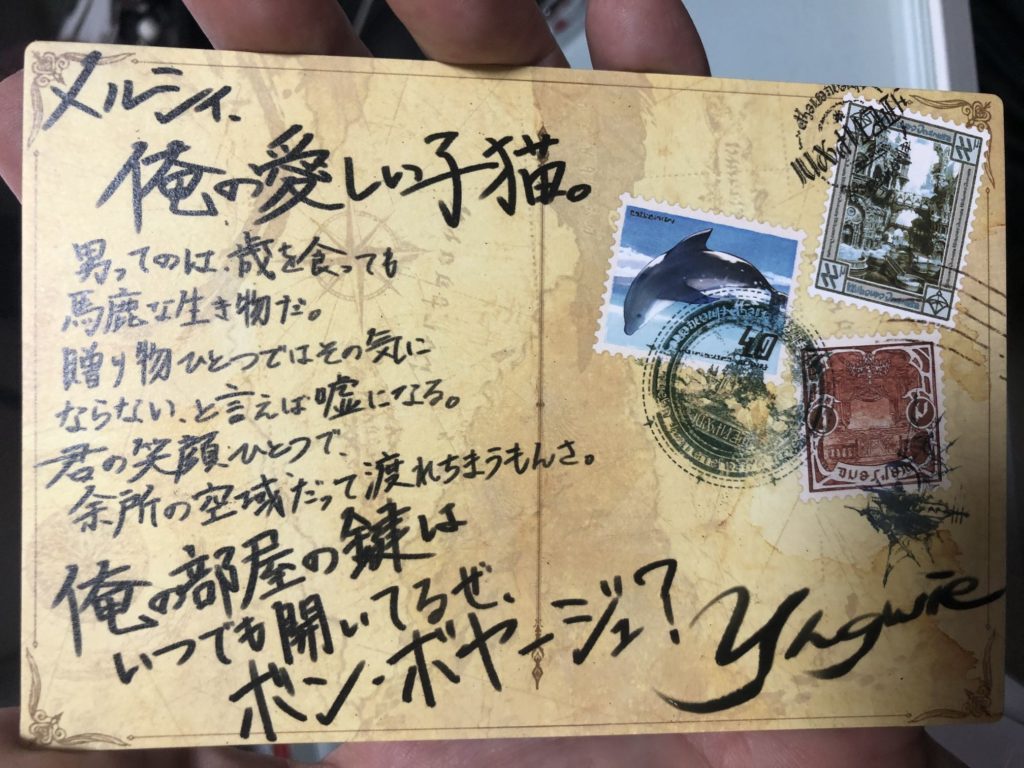 メルシィ、
俺の愛しい子猫。
男ってのは、歳を食っても
馬鹿な生き物だ。
贈り物ひとつではその気に
ならない、と言えば嘘になる。
君の笑顔ひとつで、
余所の空域だって渡れちまうもんさ。
俺の部屋の鍵は
いつでも開いてるぜ、
ボン・ボヤージュ?
Yngwie
40